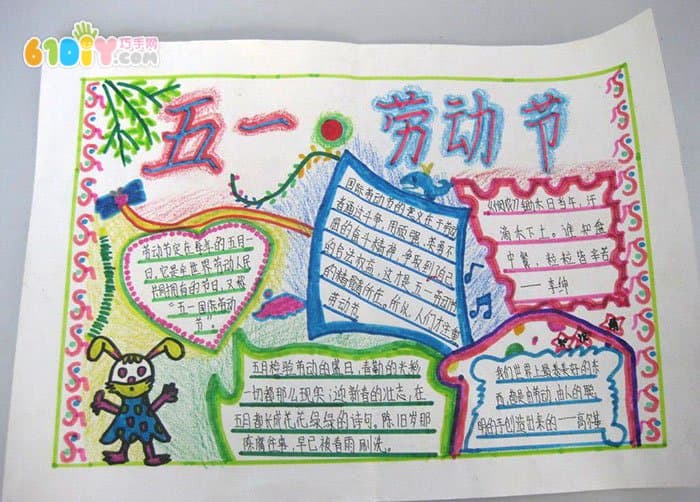 61DIY巧手网
.com
五一·劳动节
劳动节定在每年的五月一
日，它是全世界劳动人民
共同拥有的节日，又被
"五一国际劳动
节"。
国际劳动节的意义在于劳动
者通过斗争，用顽强、英勇不
屈的奋斗精神，争取到自己
的合法权益，这才是五一劳动节
的精髓所在。所以，人们才注重
劳动节
锄禾日当午，汗
滴禾下土。谁知盘
中餐，粒粒皆辛苦
——李绅
五月检验劳动的盛日，春勤的光临
一切都那么现实；迎新春的壮志，在
五月都长成花花绿绿的诗句。陈旧岁那
陈腐往来，早已被春雨刷洗。
我们世界上最美好的东
西，都是由劳动、由人的聪
明的手创造出来的——高尔基